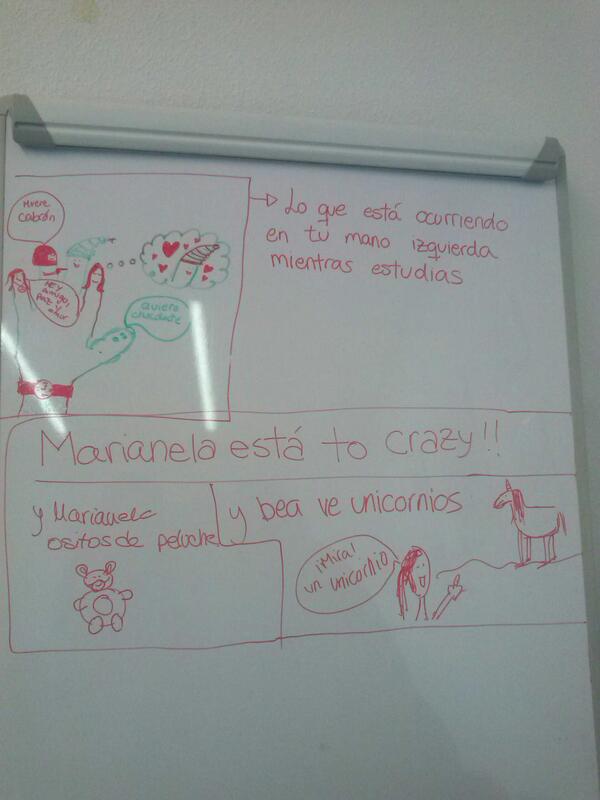 Muere
cabrón
HEY
amigo,
paz y
amor
Quiero
chocolate
Lo que está ocurriendo
en tu mano izquierda
mientras estudias
Marianela está to crazy!!
y Marianela
ositos de peluche
y bea ve unicornios
¡Mira!
un unicornio